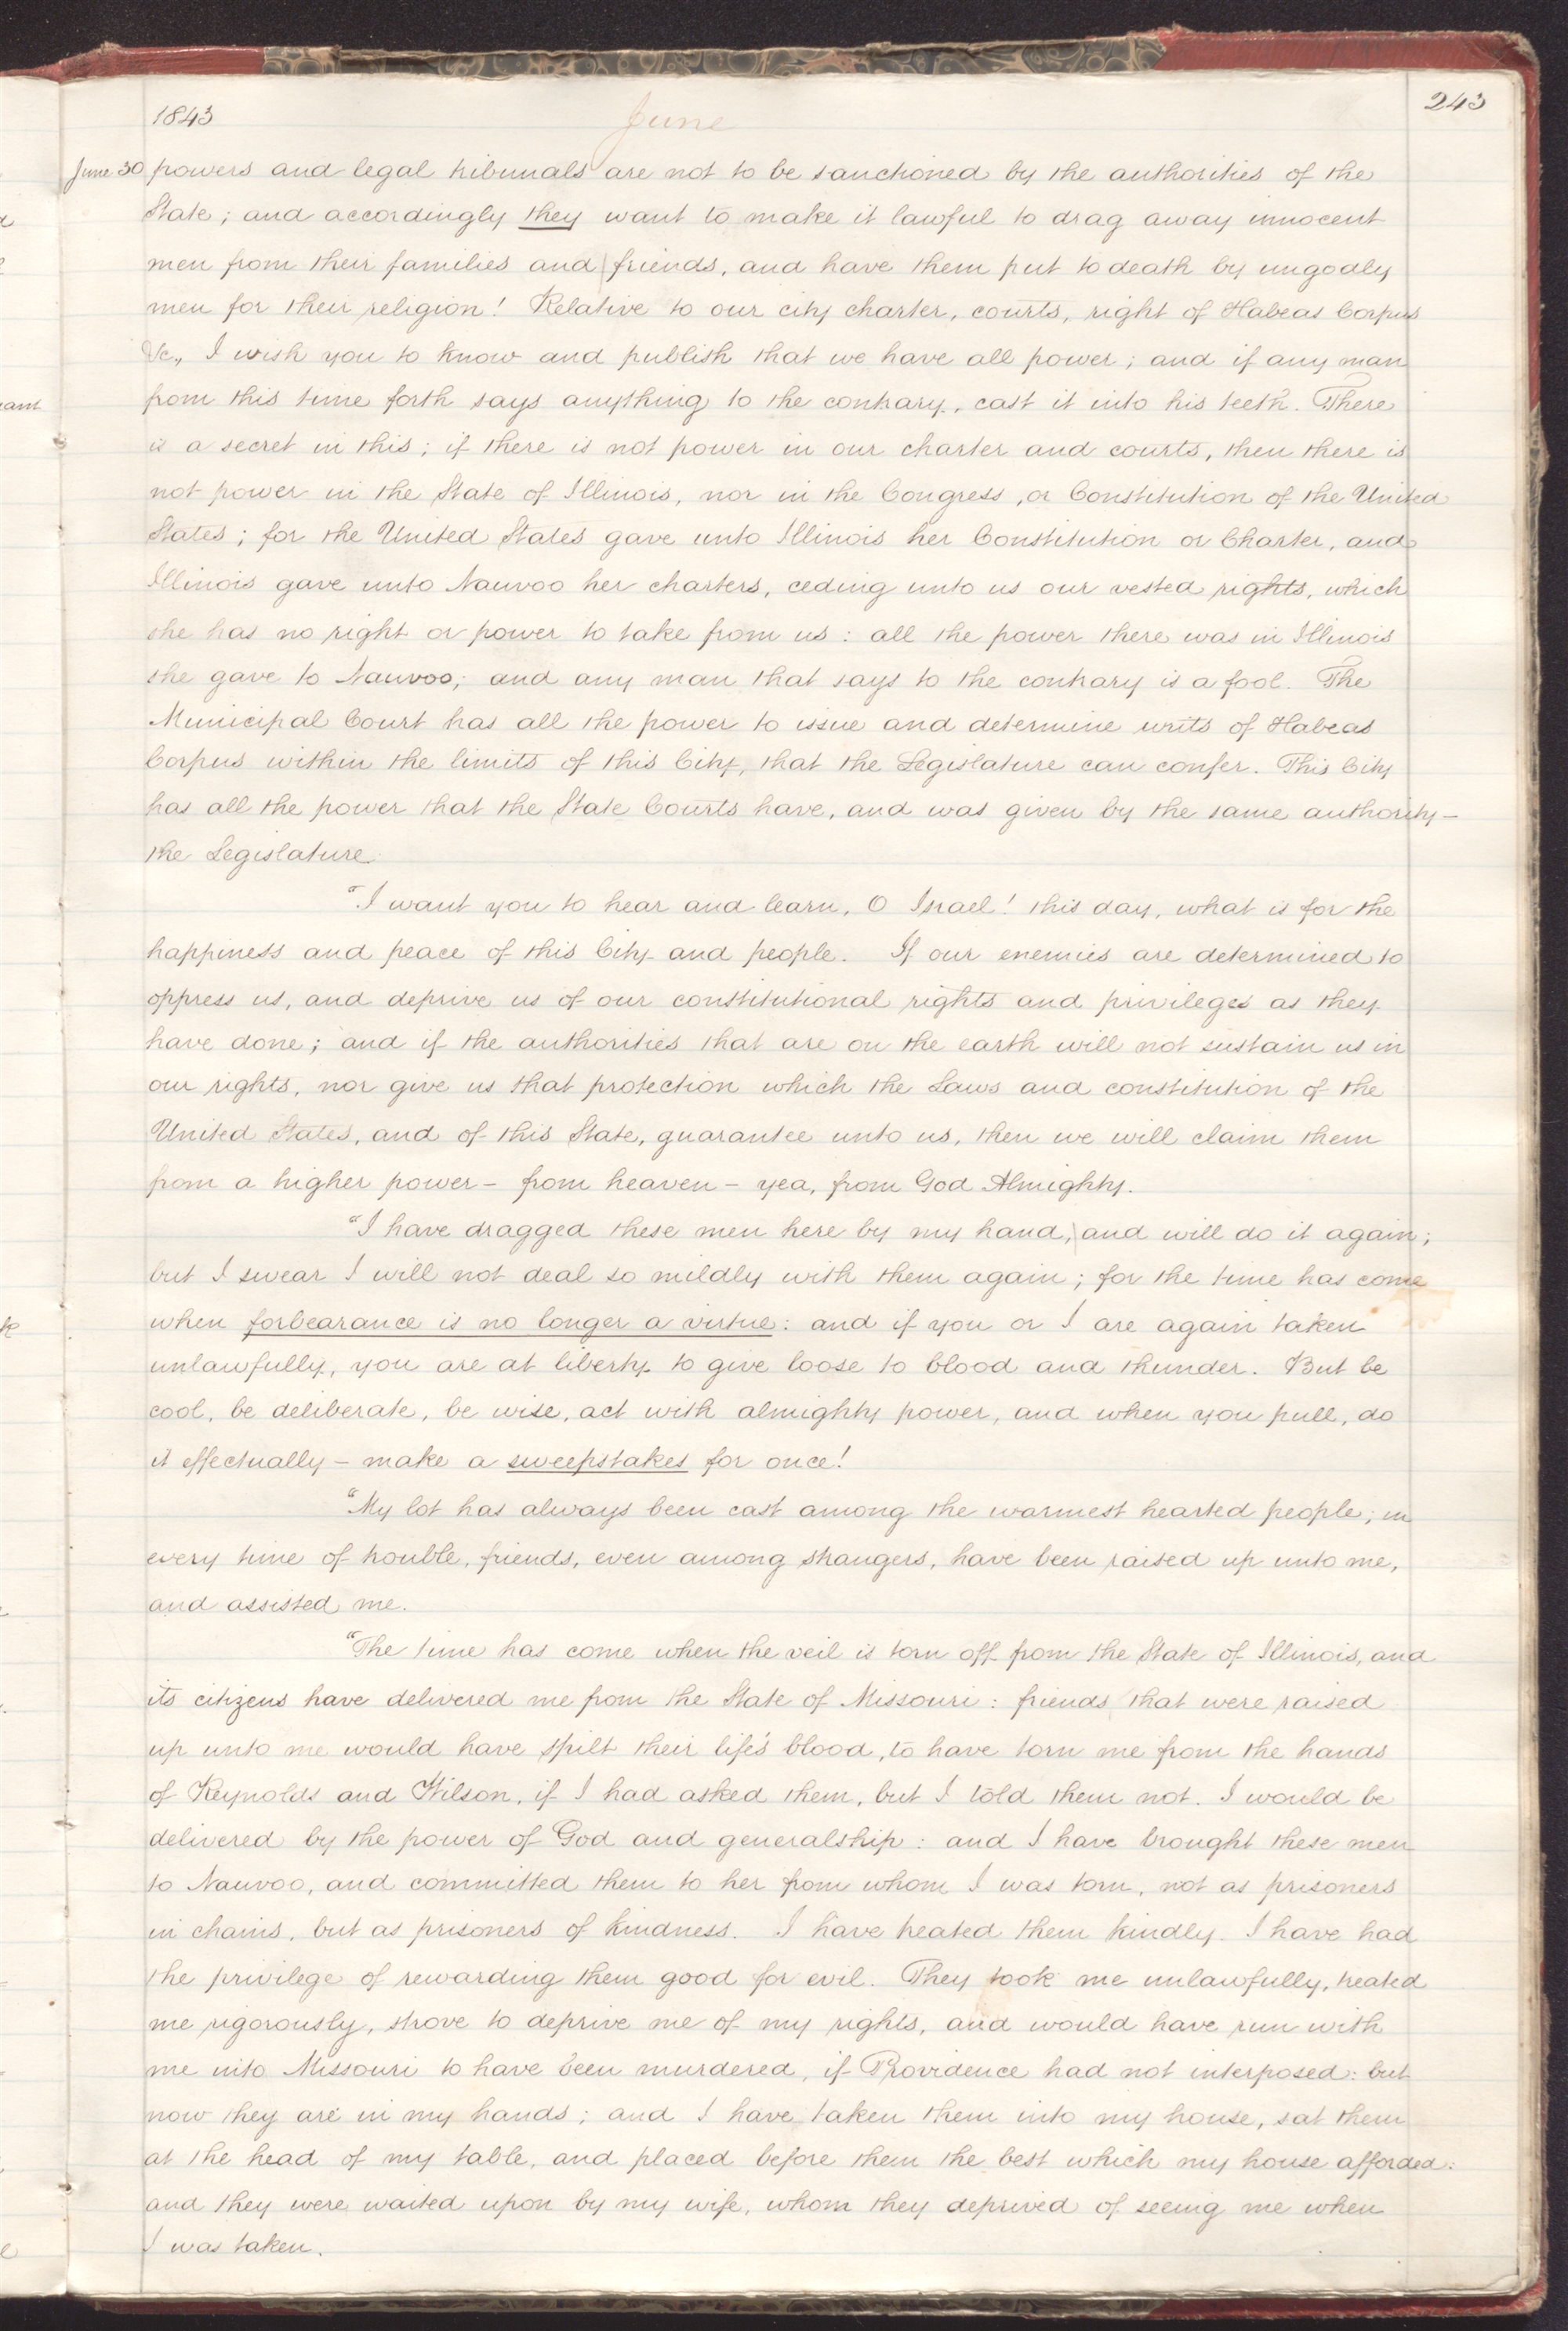 1843
June
243
June 30 powers and legal tribunals are not to be sanctioned by the authorities of the
State; and accordingly they want to make it lawful to drag away innocent
men from their families and friends, and have them put to death by ungodly
men for their religion! Relative to our city charter, courts, right of Habeas Corpus
&c., I wish you to know and publish that we have all power; and if any man
from this time forth says anything to the contrary, cast it into his teeth. There
is a secret in this; if there is not power in our charter and courts, then there is
not power in the State of Illinois, nor in the Congress, or Constitution of the United
States; for the United States gave unto Illinois her Constitution or Charter, and
Illinois gave unto Nauvoo her charters, ceding unto us our vested rights, which
she has no right or power to take from us: all the power there was in Illinois
she gave to Nauvoo; and any man that says to the contrary is a fool. The
Municipal Court has all the power to issue and determine writs of Habeas
Corpus within the limits of this City, that the Legislature can confer. This City
has all the power that the State Courts have, and was given by the same authority—
the Legislature.
"I want you to hear and learn, O Israel! this day, what is for the
happiness and peace of this City and people. If our enemies are determined to
oppress us, and deprive us of our constitutional rights and privileges as they
have done; and if the authorities that are on the earth will not sustain us in
our rights, nor give us that protection which the Laws and constitution of the
United States, and of this State, guarantee unto us, then we will claim them
from a higher power— from heaven— yea, from God Almighty.
"I have dragged these men here by my hand, and will do it again;
but I swear I will not deal so mildly with them again; for the time has come
when forbearance is no longer a virtue: and if you or I are again taken
unlawfully, you are at liberty to give loose to blood and thunder. But be
cool, be deliberate, be wise, act with almighty power, and when you pull, do
it effectually— make a sweepstakes for once!
"My lot has always been cast among the warmest hearted people; in
every time of trouble, friends, even among strangers, have been raised up unto me,
and assisted me.
"The time has come when the veil is torn off from the State of Illinois, and
its citizens have delivered me from the State of Missouri: friends that were raised
up unto me would have spilt their life's blood, to have torn me from the hands
of Reynolds and Wilson, if I had asked them, but I told them not. I would be
delivered by the power of God and generalship: and I have brought these men
to Nauvoo, and committed them to her from whom I was torn, not as prisoners
in chains, but as prisoners of kindness. I have treated them kindly. I have had
the privilege of rewarding them good for evil. They took me unlawfully, treated
me rigorously, strove to deprive me of my rights, and would have run with
me into Missouri to have been murdered, if Providence had not interposed: but
now they are in my hands; and I have taken them into my house, sat them
at the head of my table, and placed before them the best which my house afforded:
and they were waited upon by my wife, whom they deprived of seeing me when
I was taken.